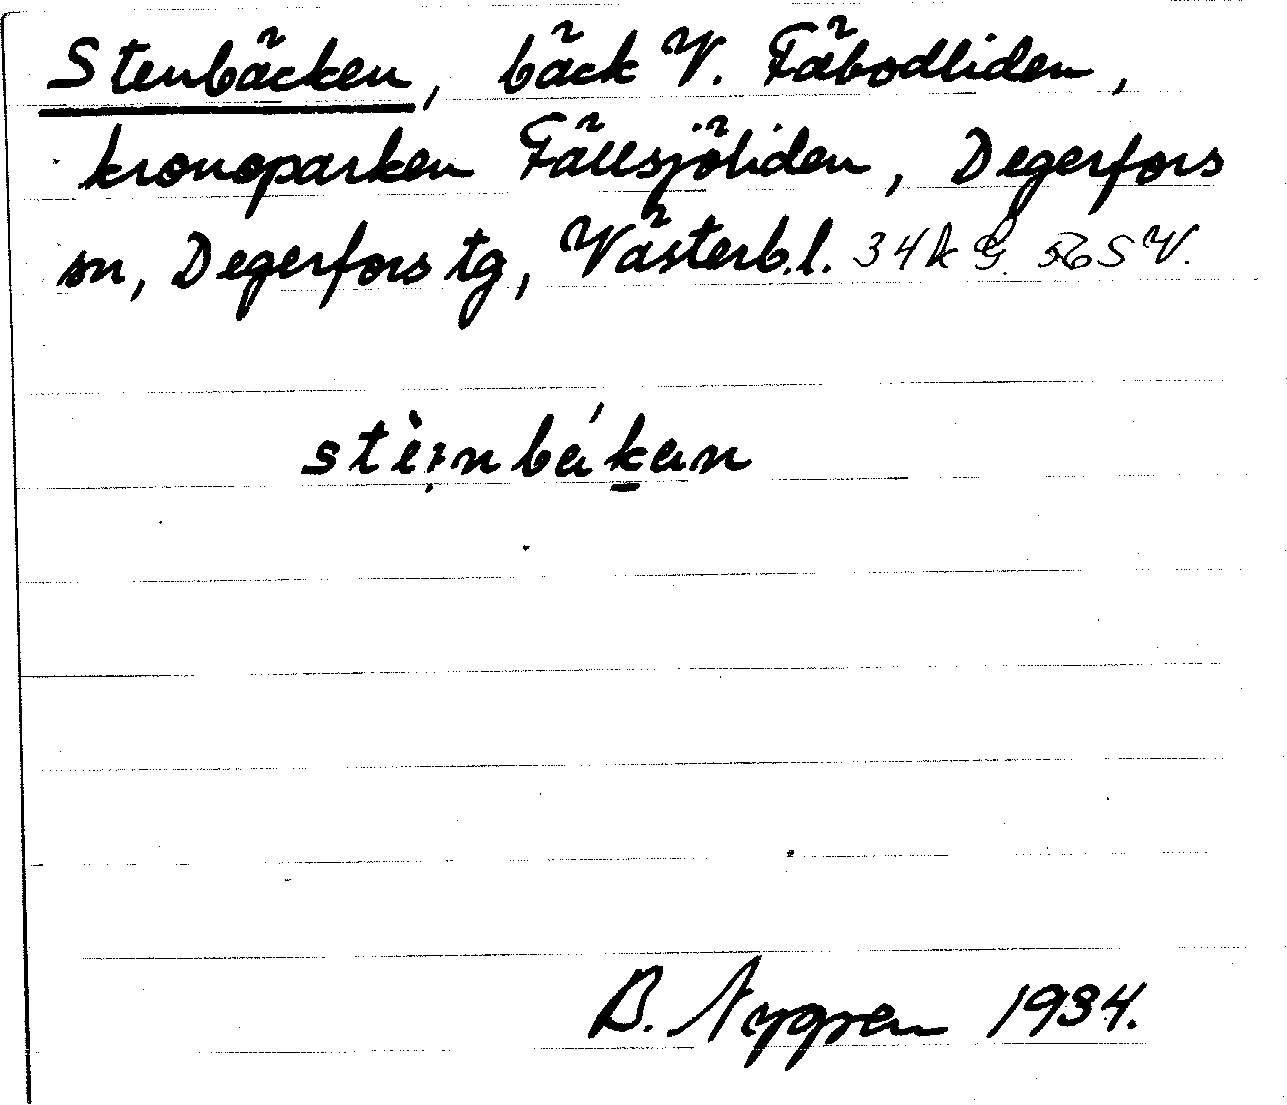 Stenbäcken, bäck V. Fäbodliden,
kronoparken Fällsjöliden, Degerfors
sn, Degerfors tg, Västerb.l. 34k G. 56 SV.
stè̩:nbá́k̲an
B. Nygren 1934.